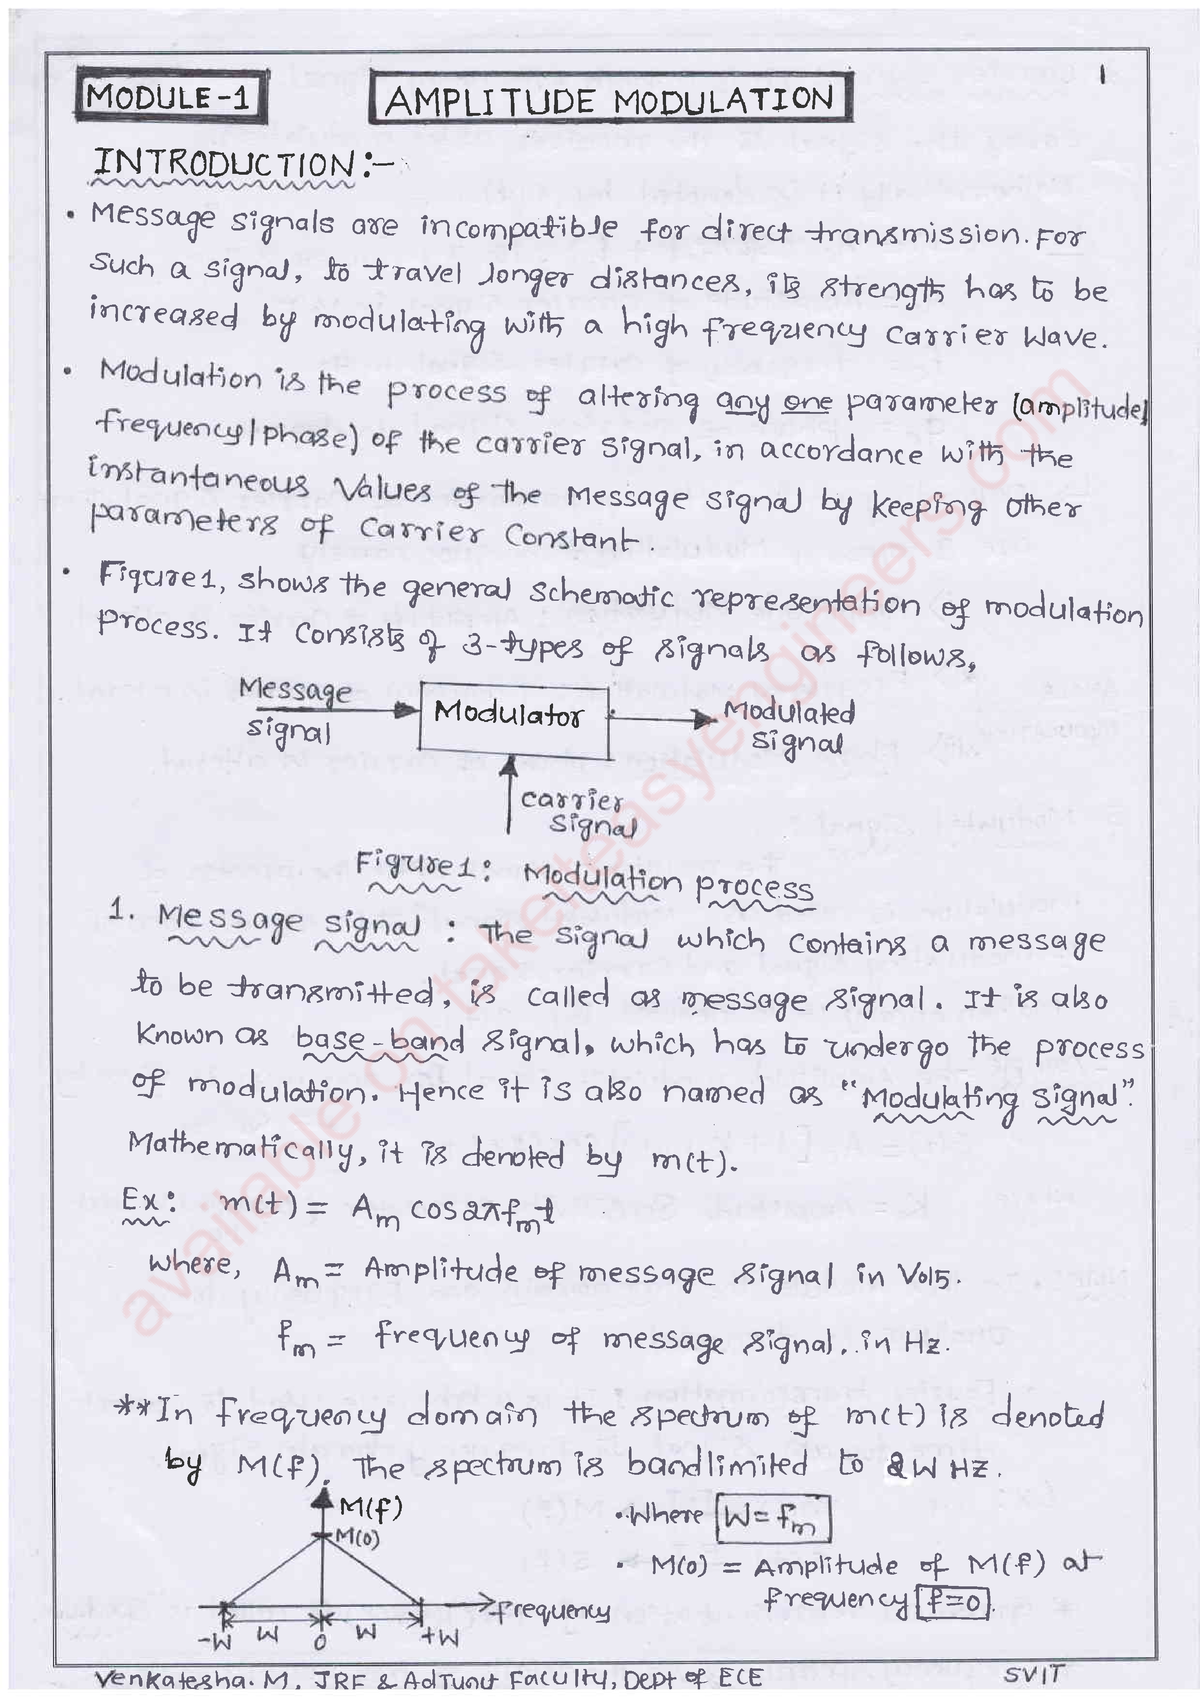 1
MODULE-1 AMPLITUDE MODULATION
INTRODUCTION:-
• Message signals are incompatible for direct transmission. For
such a signal, to travel longer distances, its strength has to be
increased by modulating with a high frequency carrier wave.
• Modulation is the process of altering any one parameter (amplitude/
frequency/phase) of the carrier signal, in accordance with the
instantaneous values of the message signal by keeping other
parameters of carrier constant.
• Figure1, shows the general schematic representation of modulation
process. It consists of 3-types of signals as follows,
Message signal
Modulator
Modulated signal
carrier signal
Figure1: Modulation process
1. Message signal : The signal which contains a message
to be transmitted, is called as message signal. It is also
known as base-band signal, which has to undergo the process
of modulation. Hence it is also named as "Modulating signal".
Mathematically, it is denoted by m(t).
Ex: m(t) = Am cos2πfmt
where, Am = Amplitude of message signal in Volts.
fm = frequency of message signal. in Hz.
**In frequency domain the spectrum of m(t) is denoted
by M(f). The spectrum is bandlimited to 2W Hz.
M(f)
M(0)
frequency
-W W 0 W +W
• Where W = fm
• M(0) = Amplitude of M(f) at
frequency f=0.
Venkatesha. M, JRF & AdJunct Faculty, Dept of ECE SVIT
available on taketeasyengineers.com